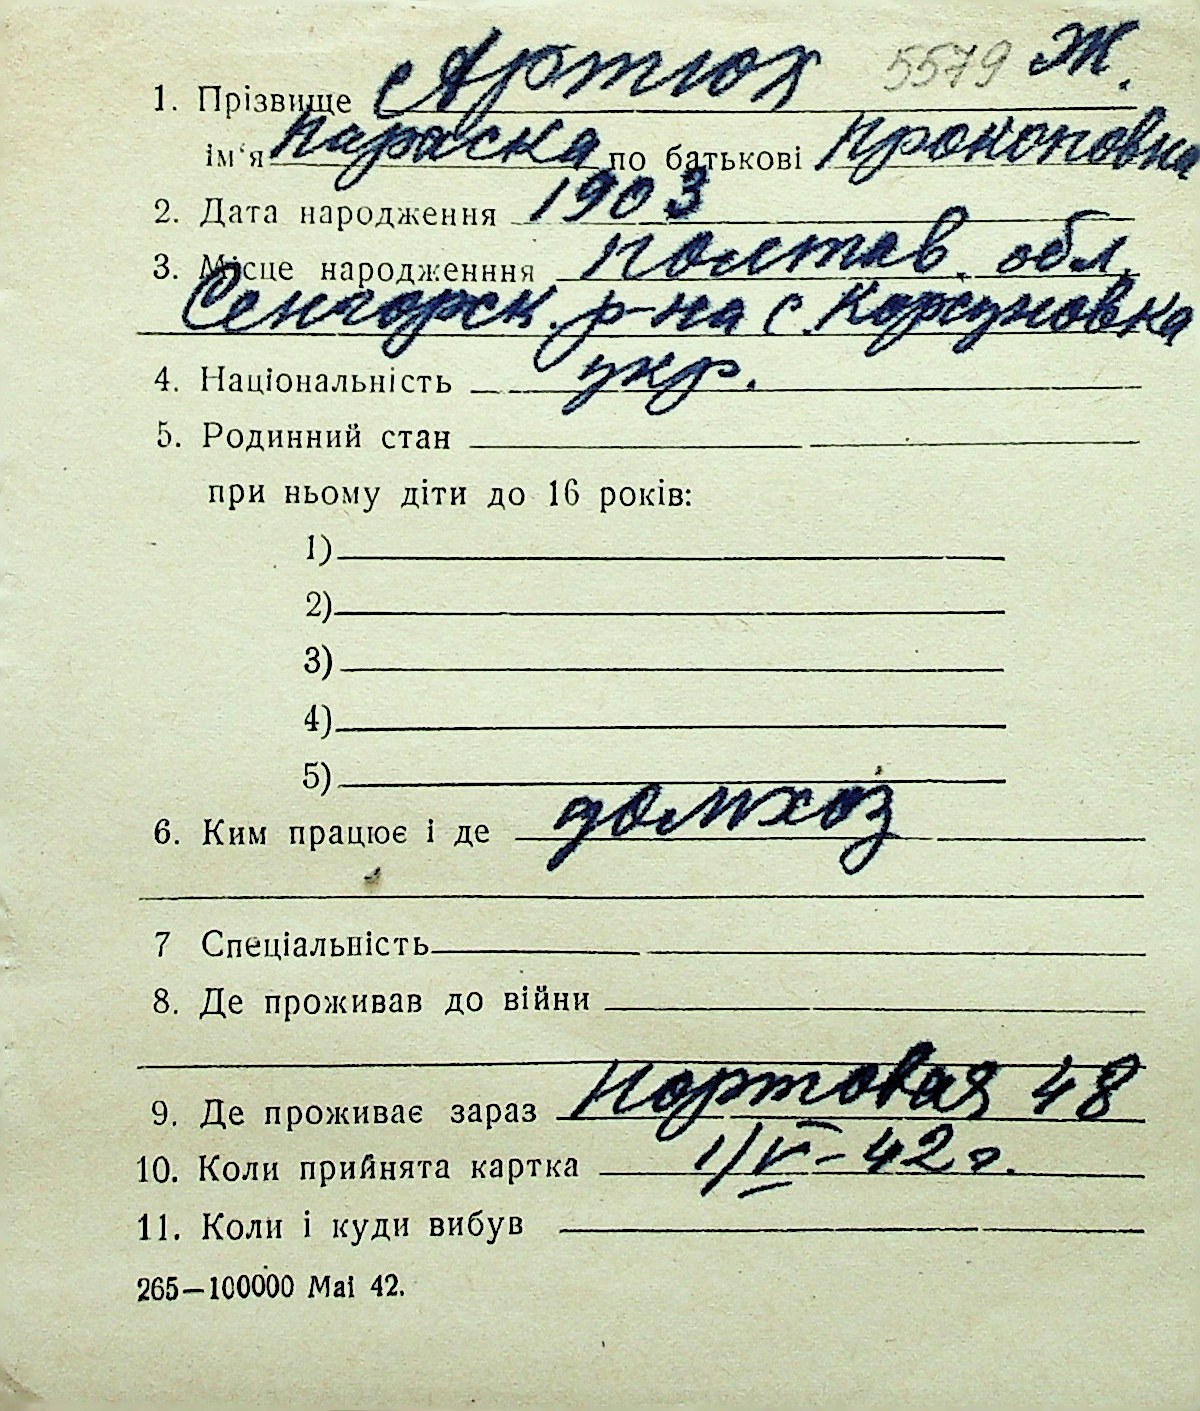 5579 Ж.
1. Прізвище Артюх
ім'я Параска по батькові Прокоповна
2. Дата народження 1903
3. Місце народженння полтав. обл.
Сенчорск. р-на с. Корсуновка
4. Національність укр.
5. Родинний стан
при ньому діти до 16 років:
1)
2)
3)
4)
5)
6. Ким працює і де домхоз
7 Спеціальність
8. Де проживав до війни
9. Де проживає зараз Портовая 48
10. Коли прийнята картка 1/V-42 г.
11. Коли і куди вибув
265—100000 Mai 42.